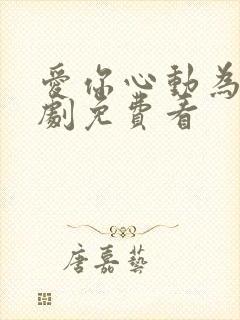 愛你心動為
劇免費看
唐嘉藝